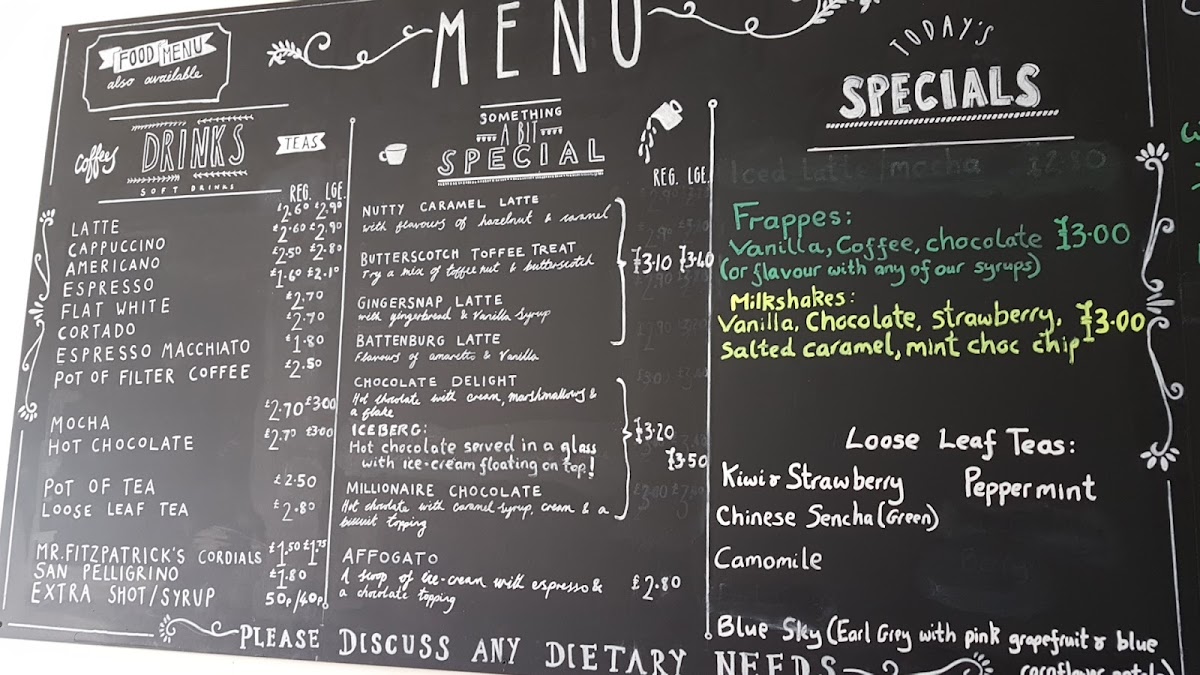 FOOD MENU
also available
MENU
coffees
DRINKS
TEAS
SOFT DRINKS
REG. LGE.
LATTE £2.60 £2.90
CAPPUCCINO £2.60 £2.90
AMERICANO £2.50 £2.80
ESPRESSO £1.60 £2.10
FLAT WHITE £2.70
CORTADO £2.70
ESPRESSO MACCHIATO £1.80
POT OF FILTER COFFEE £2.50
MOCHA £2.70 £3.00
HOT CHOCOLATE £2.70 £3.00
POT OF TEA £2.50
LOOSE LEAF TEA £2.80
MR.FITZPATRICK'S CORDIALS £1.50 £1.75
SAN PELLIGRINO £1.80
EXTRA SHOT/SYRUP 50p/40p
SOMETHING
A BIT
SPECIAL
REG. LGE.
NUTTY CARAMEL LATTE
with flavours of hazelnut & caramel
BUTTERSCOTCH TOFFEE TREAT
Try a mix of toffee nut & butterscotch
£3.10 £3.40
GINGERSNAP LATTE
with gingerbread & Vanilla Syrup
BATTENBURG LATTE
Flavours of amaretto & Vanilla
CHOCOLATE DELIGHT
Hot chocolate with cream, marshmallows &
a flake
ICEBERG: £3.20
Hot chocolate served in a glass
with ice-cream floating on top! £3.50
MILLIONAIRE CHOCOLATE
Hot chocolate with caramel syrup, cream & a
biscuit topping
AFFOGATO
A scoop of ice-cream with espresso & £2.80
a chocolate topping
TODAY'S
SPECIALS
Iced latte/mocha £2.80
Frappes:
Vanilla, Coffee, chocolate £3.00
(or flavour with any of our syrups)
Milkshakes:
Vanilla, Chocolate, strawberry, £3.00
salted caramel, mint choc chip
Loose Leaf Teas:
Kiwi & Strawberry Peppermint
Chinese Sencha (Green)
Camomile
Blue Sky (Earl Grey with pink grapefruit & blue
cornflower petals)
PLEASE DISCUSS ANY DIETARY NEEDS